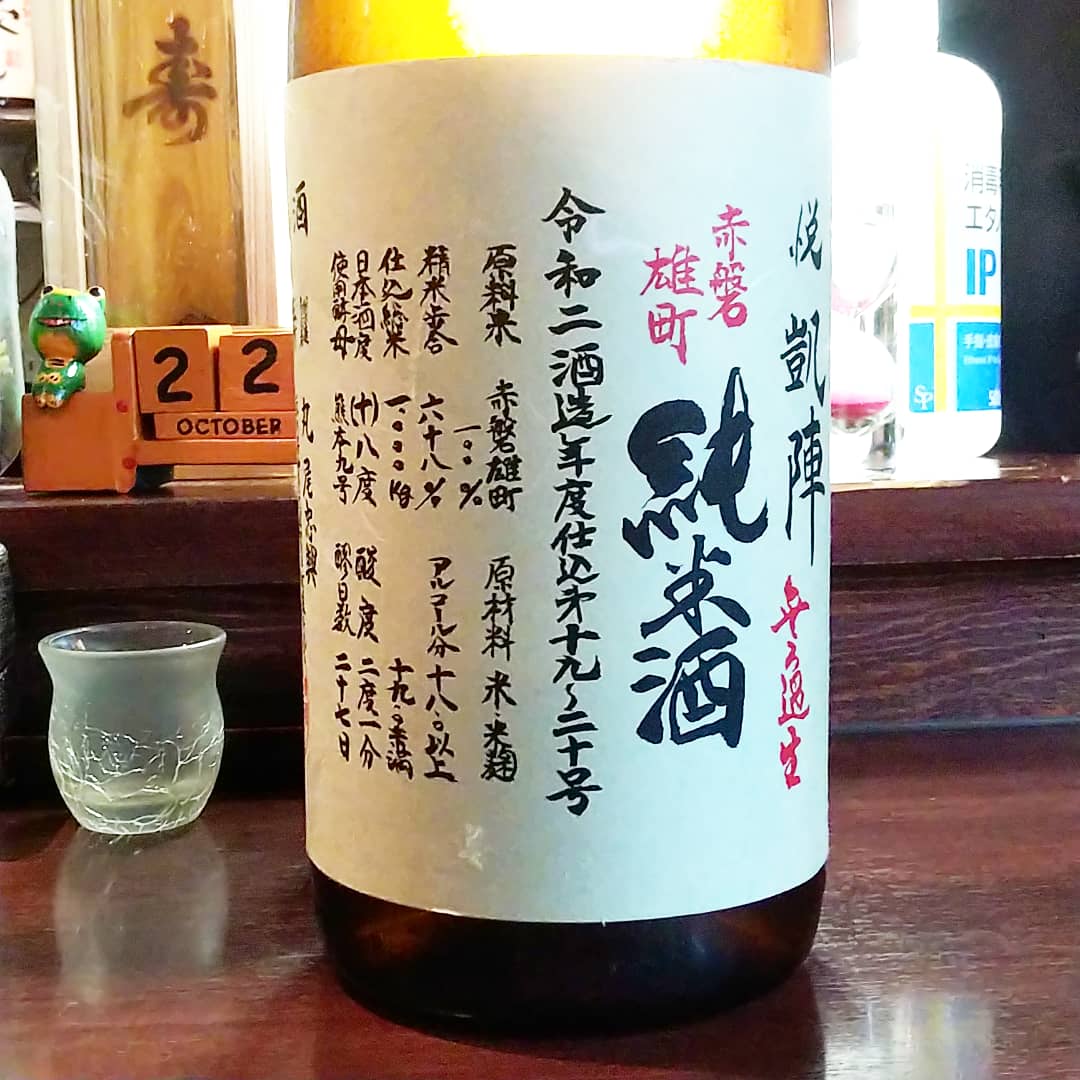 悦凱陣 無ろ過生
赤磐
雄町
純米酒
令和二酒造年度仕込第十九~二十号
原料米 赤磐雄町 原材料 米・米麹
一〇〇%
精米歩合 六十八% アルコール分十八.〇以上
十九.〇未満
仕込総米 一.〇〇〇Kg
日本酒度 (十)八度 酸度 二度一分
使用酵母 熊本九号 醪日数 二十七日
酒
丸尾忠興
寿
22
OCTOBER
消毒
エタ
IP
手指・皮
SP